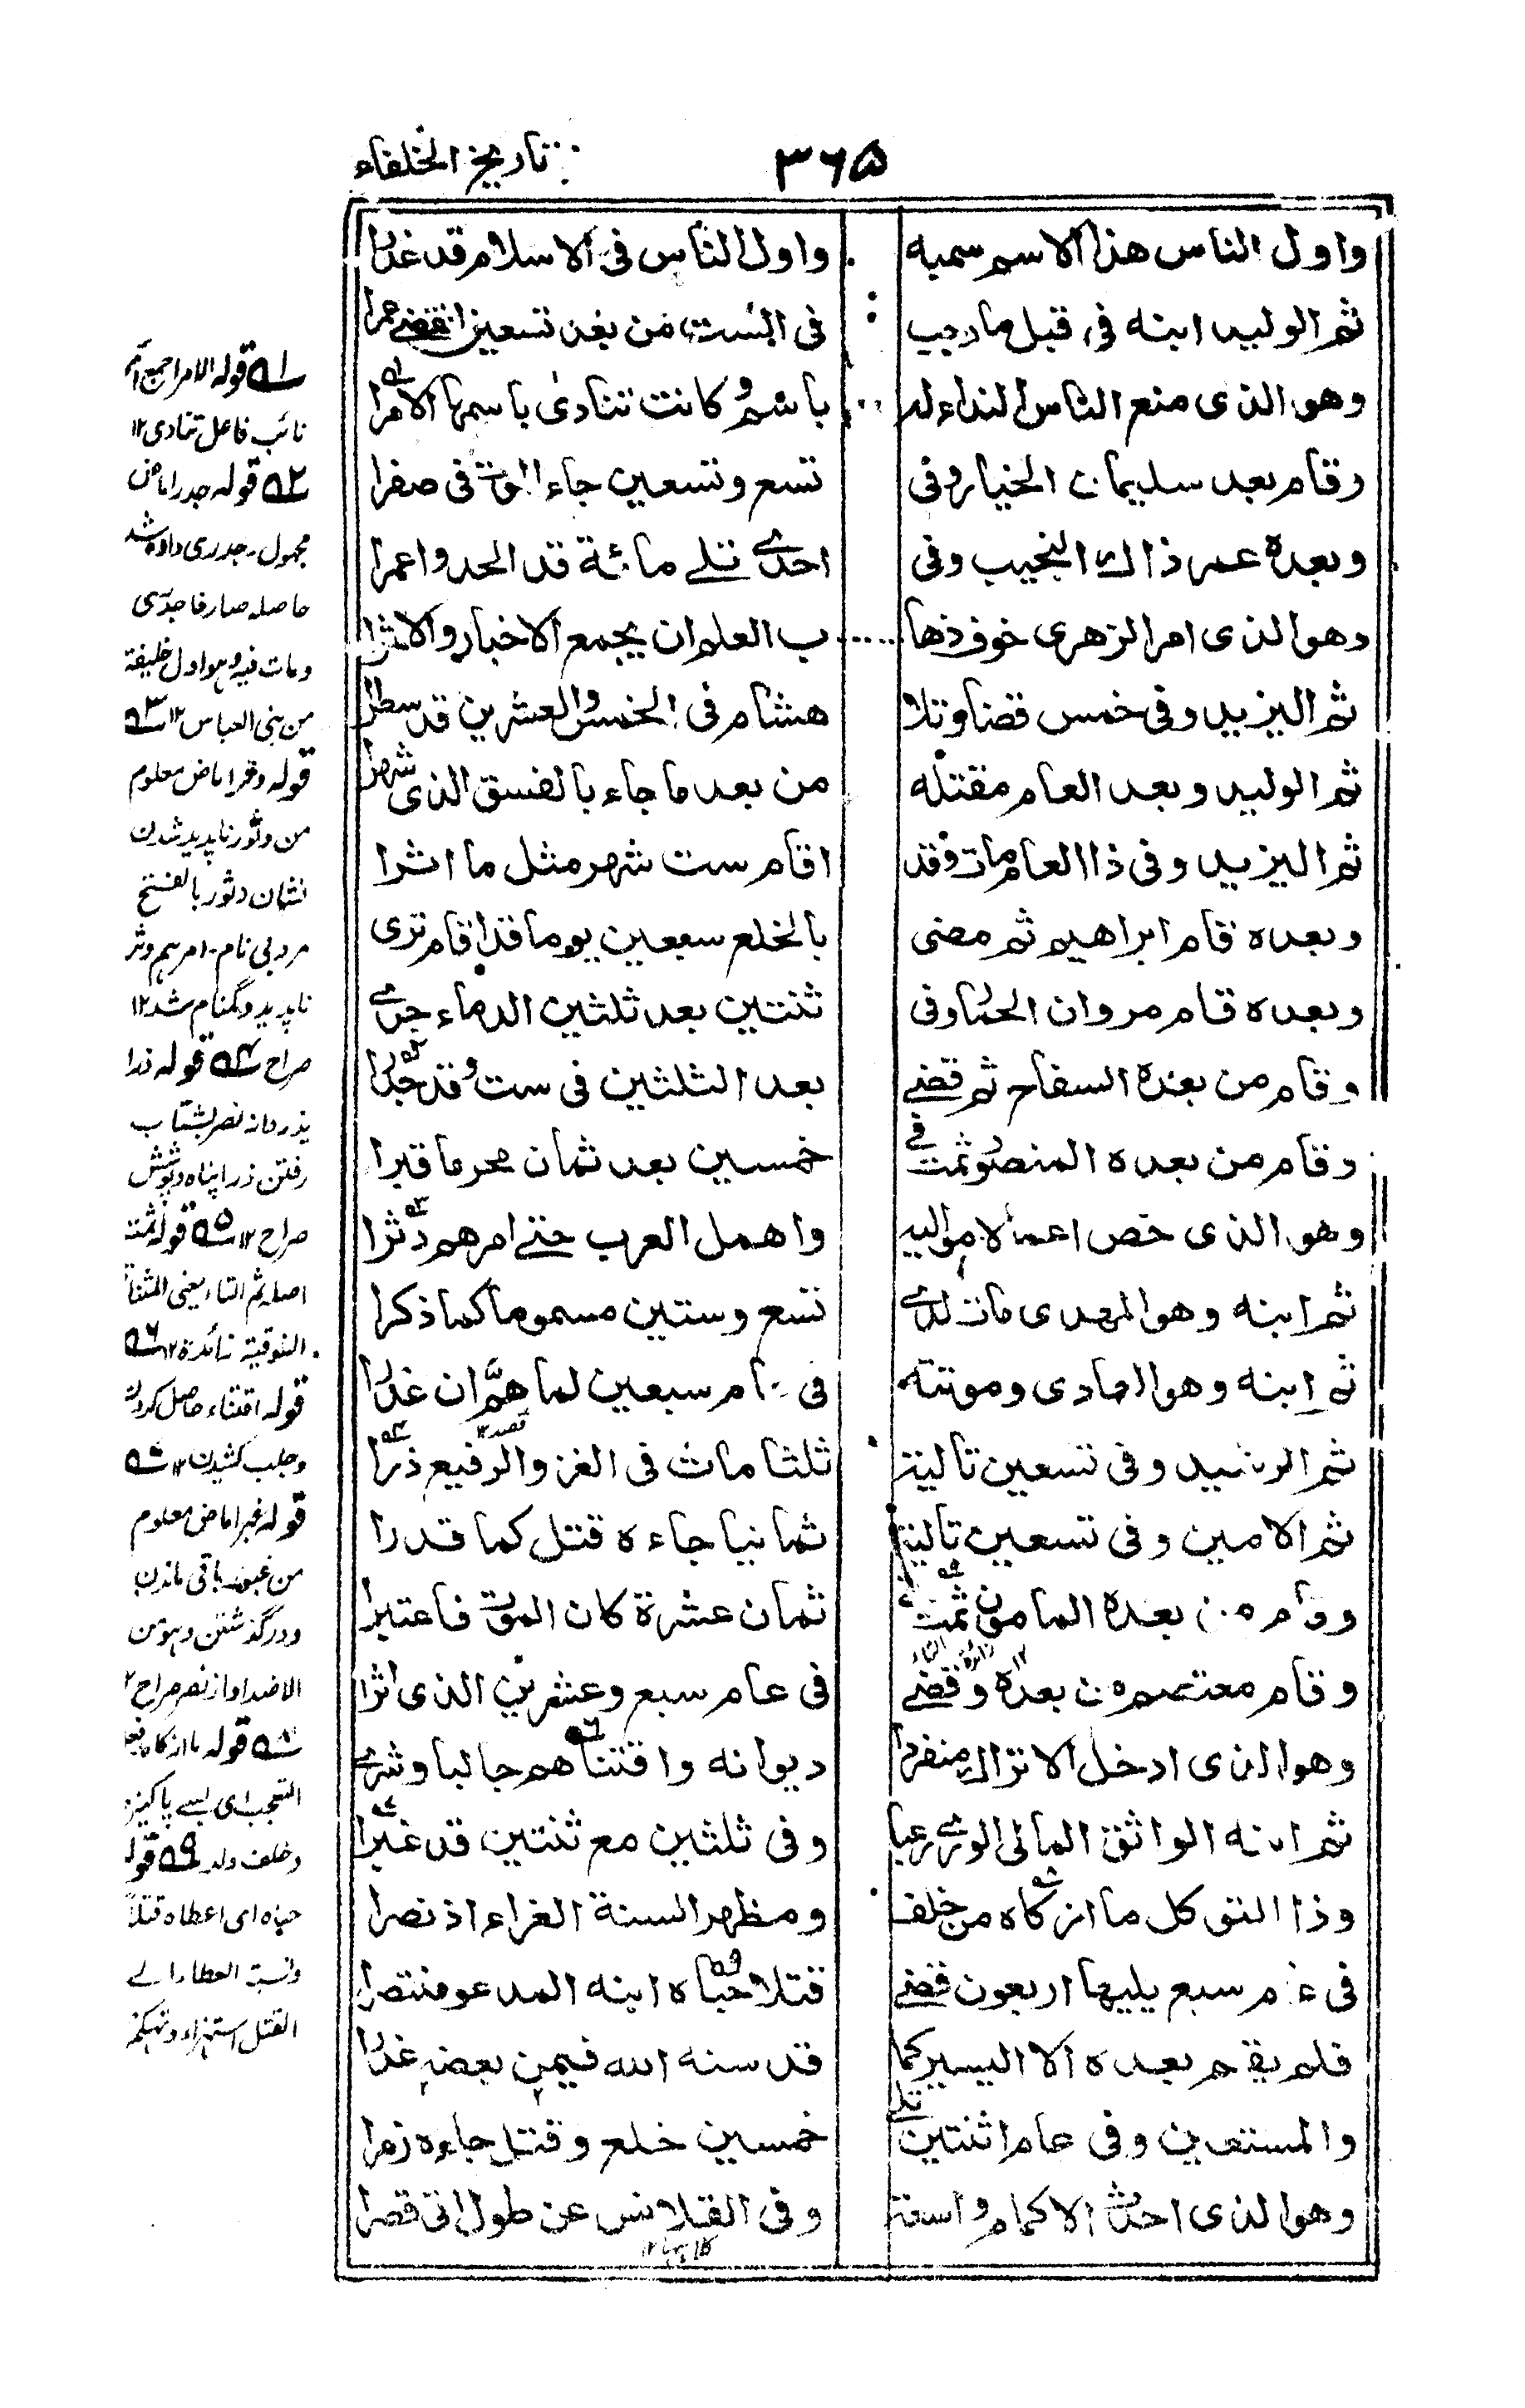 تاريخ الخلفاء
۳۶۵
واول الناس هذا الاسم سميه واول الناس فى الاسلام قد غدرا
ثم الوليد ابنه فى قبل ما رجب فى الست من بعد تسعين انقضے عمرا
وهو الذى منع الناس النداء له باسم وكانت تنادىٰ باسمها الامرا
وقام بعد سليمان الخيار وفى تسع وتسعين جاء الموت فى صفرا
وبعده عمر ذاك النجيب وفى احدے تلے مائة قد الحدوا عمرا
وهو الذى امر الزهرى خوف ذها ب العلم ان يجمع الاخبار والاثرا
ثم اليزيد وفى خمس قضا وتلا هشام فى الخمس والعشرين قد سطرا
ثم الوليد وبعد العام مقتله من بعد ما جاء بالفسق الذى شهرا
ثم اليزيد وفى ذا العام مات وقد اقام ست شهر مثل ما اثرا
وبعده قام ابراهيم ثم مضى بالخلع سبعين يوما قد اقام ترى
وبعده قام مروان الحمار وفى ثنتين بعد ثلثين الدماء جرے
وقام من بعده السفاح ثم قضے بعد الثلثين فى ست وقد جدرا
وقام من بعده المنصور ثمت فى خمسين بعد ثمان محرما قبرا
وهو الذى خص اعمالا مواليه واهمل العرب حتے امرهم دثرا
ثم ابنه وهو المهدى مات لدے تسع وستين مسموما كما ذكرا
ثم ابنه وهو الهادى وموتته فى عام سبعين لما همّ ان غدرا
ثم الرشيد وفى تسعين تالية ثلثا مات فى الغز والرفيع ذرا
ثم الامين وفى تسعين تالية ثمانيا جاءه قتل كما قدرا
وقام من بعده المامون ثمت فى ثمان عشرة كان الموت فاعتبرا
وقام معتصم من بعده وقضے فى عام سبع وعشرين الذى اثرا
وهو الذى ادخل الاتراك منفردا ديوانه واقتناهم جالبا وشرے
ثم ابنه الواثق المالى الورے رعبا وفى ثلثين مع ثنتين قد غبرا
وذا التوكل ما ازكاه من خلف ومظهر السنة الغراء اذ نصرا
فى عام سبع يليها اربعون قضے قتلا حباه ابنه المدعو منتصرا
فلم يقم بعده الا اليسير كما قد سنه الله فيمن بعضه غدرا
والمستعين وفى عام اثنتين تلے خمسين خلع وقتل جاءه زمرا
وهو الذى احدث الاكمام واسعة وفى القلانس عن طول اتى قصرا
كلاهها ۱۲
ـه۱ قوله الامرا جميع امير
نائب فاعل تنادى ۱۲
ـه۲ قوله جدرا ماض
مجهول، جدرى داده شد
حاصله صار ذا جدرى
ومات فيه وهو اول خليفة
من بنى العباس ۱۲ ـه۳
قوله دثرا ماض معلوم
من دثور ناپديد شدن
نشان دثور بالفتح
مرد بى نام، امرهم دثر
ناپديد وگمنام شد ۱۲
صراح ـه۴ قوله ذرا
رفتن ذرا پناه وپوشش
صراح ۱۲ ـه۵ قوله ثمت
اصله ثم التاء يعنى المثناة
الفوقية زائدة ۱۲ ـه۶
قوله اقتناء حاصل كردن
وجلب كشيدن ۱۲ ـه۷
قوله غبرا ماض معلوم
من غبور باقى ماندن
ودر گذشتن وهو من
الاضداد از نصر صراح ۱۲
ـه۸ قوله ما ازكاه فعل
التعجب اى بسے پاكيزه
وخلف ولد ـه۹ قوله
حباه اى اعطاه قتلا
ونسبة العطاء الے
القتل استهزاء وتهكم